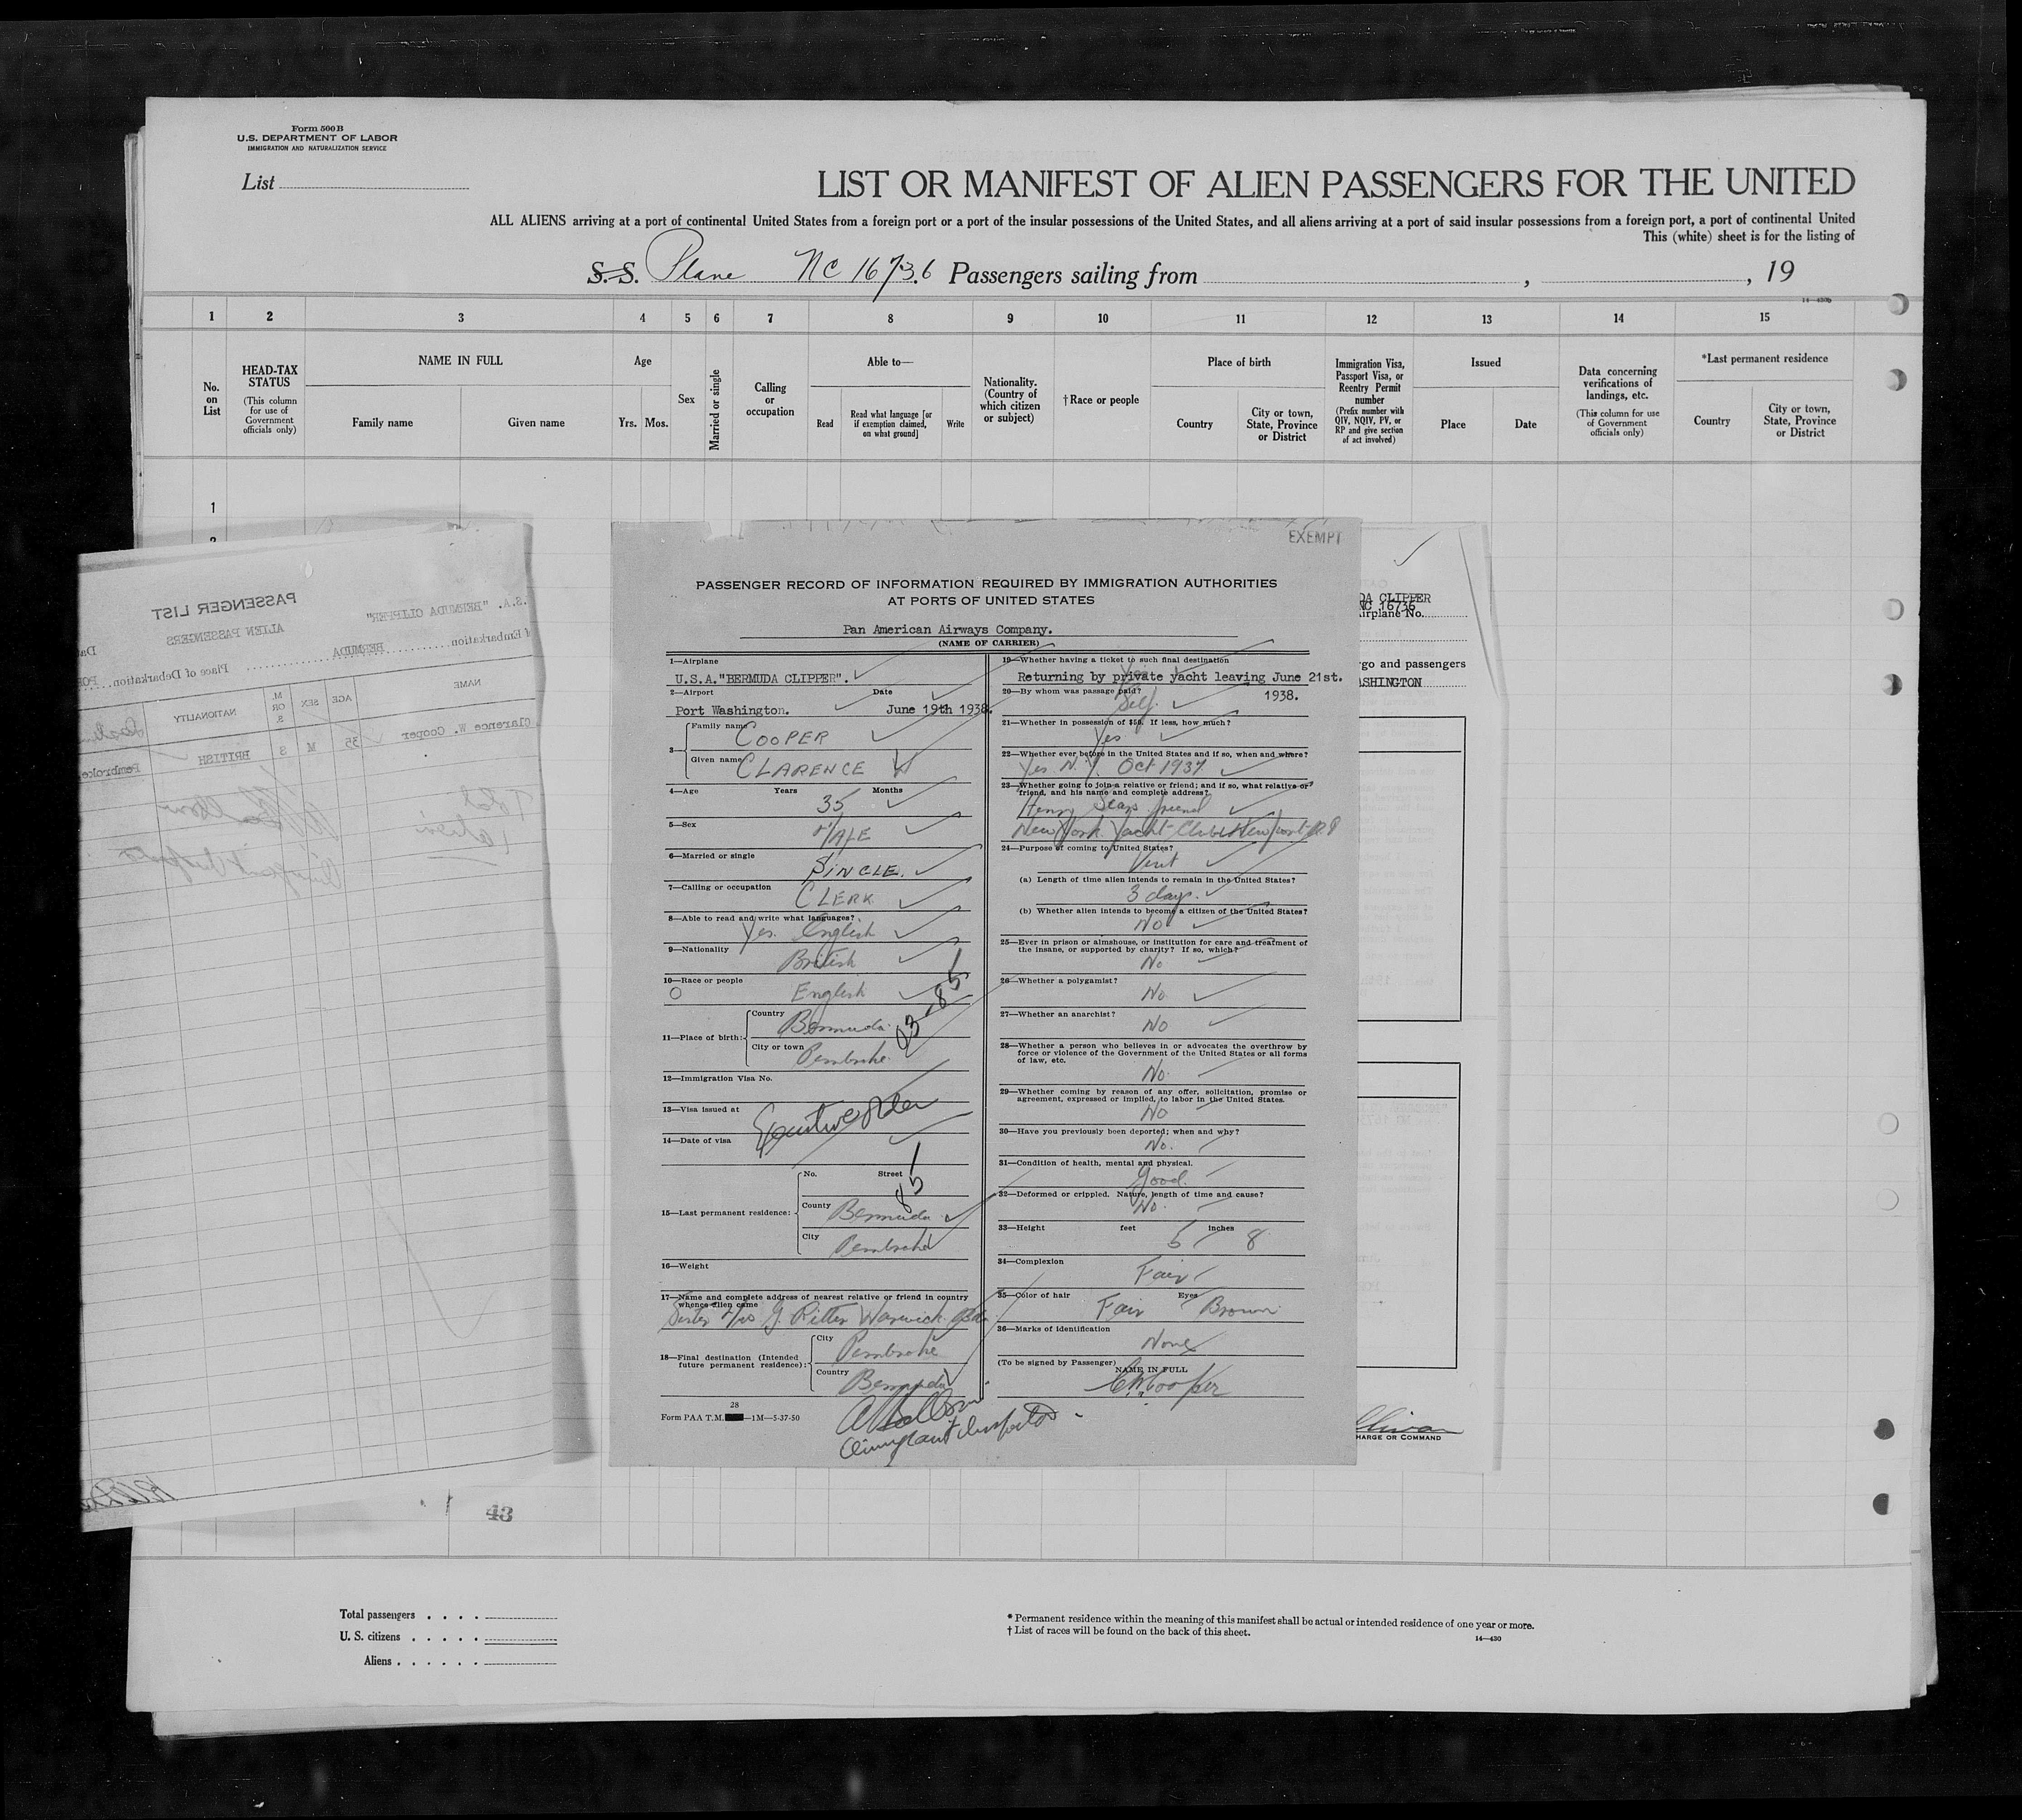 Form 500B
U.S. DEPARTMENT OF LABOR
IMMIGRATION AND NATURALIZATION SERVICE
List
LIST OR MANIFEST OF ALIEN PASSENGERS FOR THE UNITED
ALL ALIENS arriving at a port of continental United States from a foreign port or a port of the insular possessions of the United States, and all aliens arriving at a port of said insular possessions from a foreign port, a port of continental United
This (white) sheet is for the listing of
S.S. Plane NC 16736 Passengers sailing from , , 19
14—430b
1 2 3 4 5 6 7 8 9 10 11 12 13 14 15
No. on List
HEAD-TAX STATUS
(This column for use of Government officials only)
NAME IN FULL
Family name
Given name
Age
Yrs. Mos.
Sex
Married or single
Calling or occupation
Able to—
Read
Read what language [or if exemption claimed, on what ground]
Write
Nationality. (Country of which citizen or subject)
†Race or people
Place of birth
Country
City or town, State, Province or District
Immigration Visa, Passport Visa, or Reentry Permit number
(Prefix number with QIV, NQIV, PV, or RP and give section of act involved)
Issued
Place
Date
Data concerning verifications of landings, etc.
(This column for use of Government officials only)
*Last permanent residence
Country
City or town, State, Province or District
1
2
PASSENGER LIST
ALIEN PASSENGERS
S.A. "BERMUDA CLIPPER"
Embarkation BERMUDA Place of Debarkation
NAME AGE SEX M. OR S. NATIONALITY
Clarence W. Cooper 35 M S BRITISH Pembroke
Total
1 alien
Immigrant Inspector
EXEMPT
PASSENGER RECORD OF INFORMATION REQUIRED BY IMMIGRATION AUTHORITIES
AT PORTS OF UNITED STATES
Pan American Airways Company.
(NAME OF CARRIER)
1—Airplane
U.S.A."BERMUDA CLIPPER".
2—Airport Date
Port Washington. June 19th 1938.
3— Family name COOPER
Given name CLARENCE W
4—Age Years Months
35
5—Sex
MALE
6—Married or single
SINGLE.
7—Calling or occupation
CLERK
8—Able to read and write what languages?
Yes. English
9—Nationality
British
10—Race or people
English
03-85
11—Place of birth: Country Bermuda.
City or town Pembroke.
12—Immigration Visa No.
13—Visa issued at
Executive Order
14—Date of visa
15—Last permanent residence: No. Street
85
County Bermuda
City Pembroke
16—Weight
17—Name and complete address of nearest relative or friend in country whence alien came
Sister Mrs G. Ritter Warwick Bda.
18—Final destination (Intended future permanent residence): City Pembroke
Country Bermuda
19—Whether having a ticket to such final destination
Yes
Returning by private yacht leaving June 21st.
1938.
20—By whom was passage paid?
Self.
21—Whether in possession of $50. If less, how much?
Yes.
22—Whether ever before in the United States and if so, when and where?
Yes N.Y. Oct 1937.
23—Whether going to join a relative or friend; and if so, what relative or friend, and his name and complete address?
Henry Sears friend
New York Yacht Club Newport R.I
24—Purpose of coming to United States?
Visit
(a) Length of time alien intends to remain in the United States?
3 days.
(b) Whether alien intends to become a citizen of the United States?
No
25—Ever in prison or almshouse, or institution for care and treatment of the insane, or supported by charity? If so, which?
No
26—Whether a polygamist?
No.
27—Whether an anarchist?
No
28—Whether a person who believes in or advocates the overthrow by force or violence of the Government of the United States or all forms of law, etc.
No.
29—Whether coming by reason of any offer, solicitation, promise or agreement, expressed or implied, to labor in the United States.
No
30—Have you previously been deported; when and why?
No.
31—Condition of health, mental and physical.
Good.
32—Deformed or crippled. Nature, length of time and cause?
No.
33—Height feet 5 inches 8
34—Complexion
Fair
35—Color of hair Eyes
Fair Brown
36—Marks of identification
None
(To be signed by Passenger)
NAME IN FULL
C.W. Cooper
28
Form PAA T.M. —1M—5-37-50
Immigrant Inspector
DA CLIPPER
NC 16736
Airplane No.
rgo and passengers
ASHINGTON
HARGE OR COMMAND
43
Total passengers
U. S. citizens
Aliens
* Permanent residence within the meaning of this manifest shall be actual or intended residence of one year or more.
† List of races will be found on the back of this sheet.
14—430